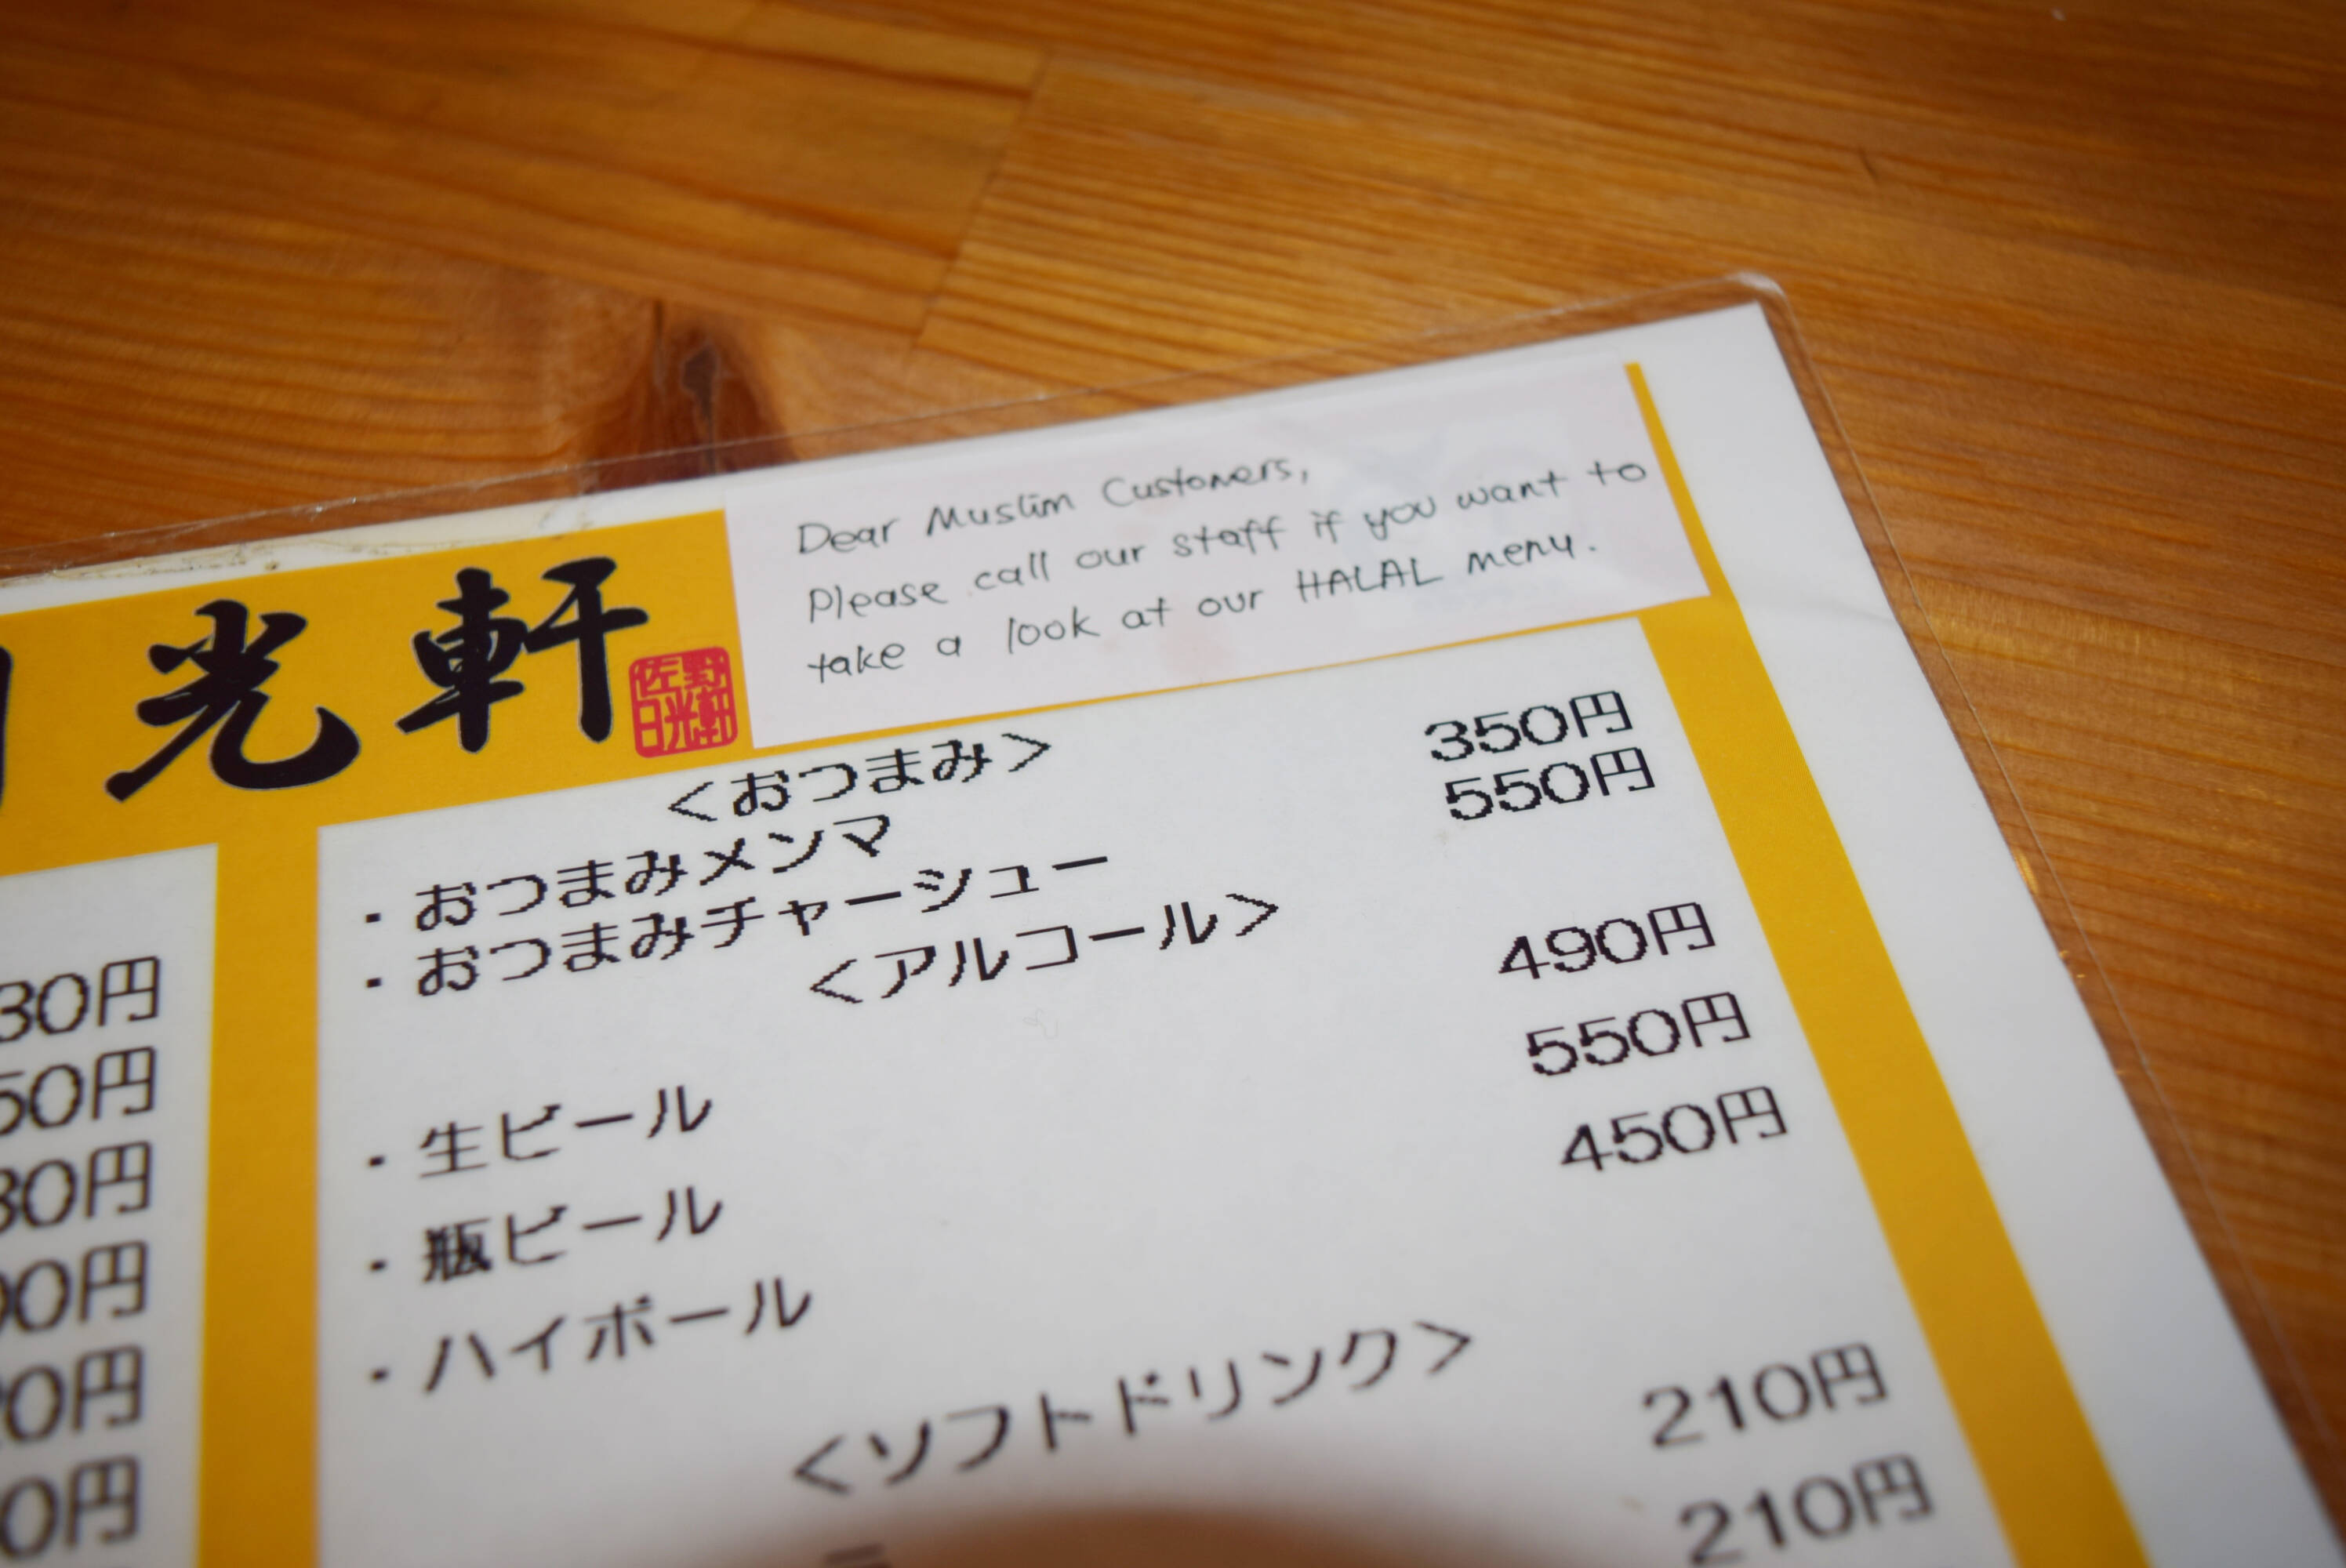 光軒
佐野
日光軒
Dear Muslim Customers,
Please call our staff if you want to
take a look at our HALAL menu.
<おつまみ>
・おつまみメンマ 350円
・おつまみチャーシュー 550円
<アルコール>
・生ビール 490円
・瓶ビール 550円
・ハイボール 450円
<ソフトドリンク>
210円
210円
30円
50円
80円
00円
20円
0円